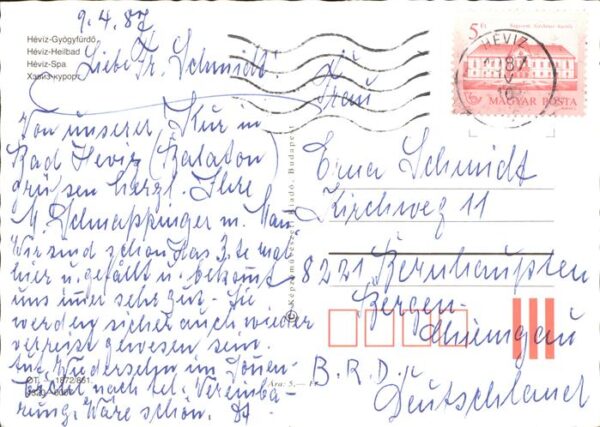 9.4.87
Hévíz-Gyógyfürdő
Hévíz-Heilbad
Hévíz-Spa
Хэвиз-курорт
Liebe Fr. Schmidt
Von unserer Kur in
Bad Heviz (Balaton)
grüssen herzl. Ihre
M. Schnappinger m. Man
Wir sind schon das 3. te mal
hier u. gefällt u. bekomt
uns imer sehr gut - Sie
werden sicher auch wieder
verreist gewesen sein.
Auf Wiedersehn im
nach tel. Vereinba-
rung. Wäre schön.
1872/861
Ára: 5,— Ft
Képzőművészeti Kiadó, Budapest
5 Ft
HÉVÍZ
87
MAGYAR POSTA
Frau
Erna Schmidt
Kirchweg 11
8221 Bernhaupten
Bergen-
Chiemgau
B.R.D.
Deutschland